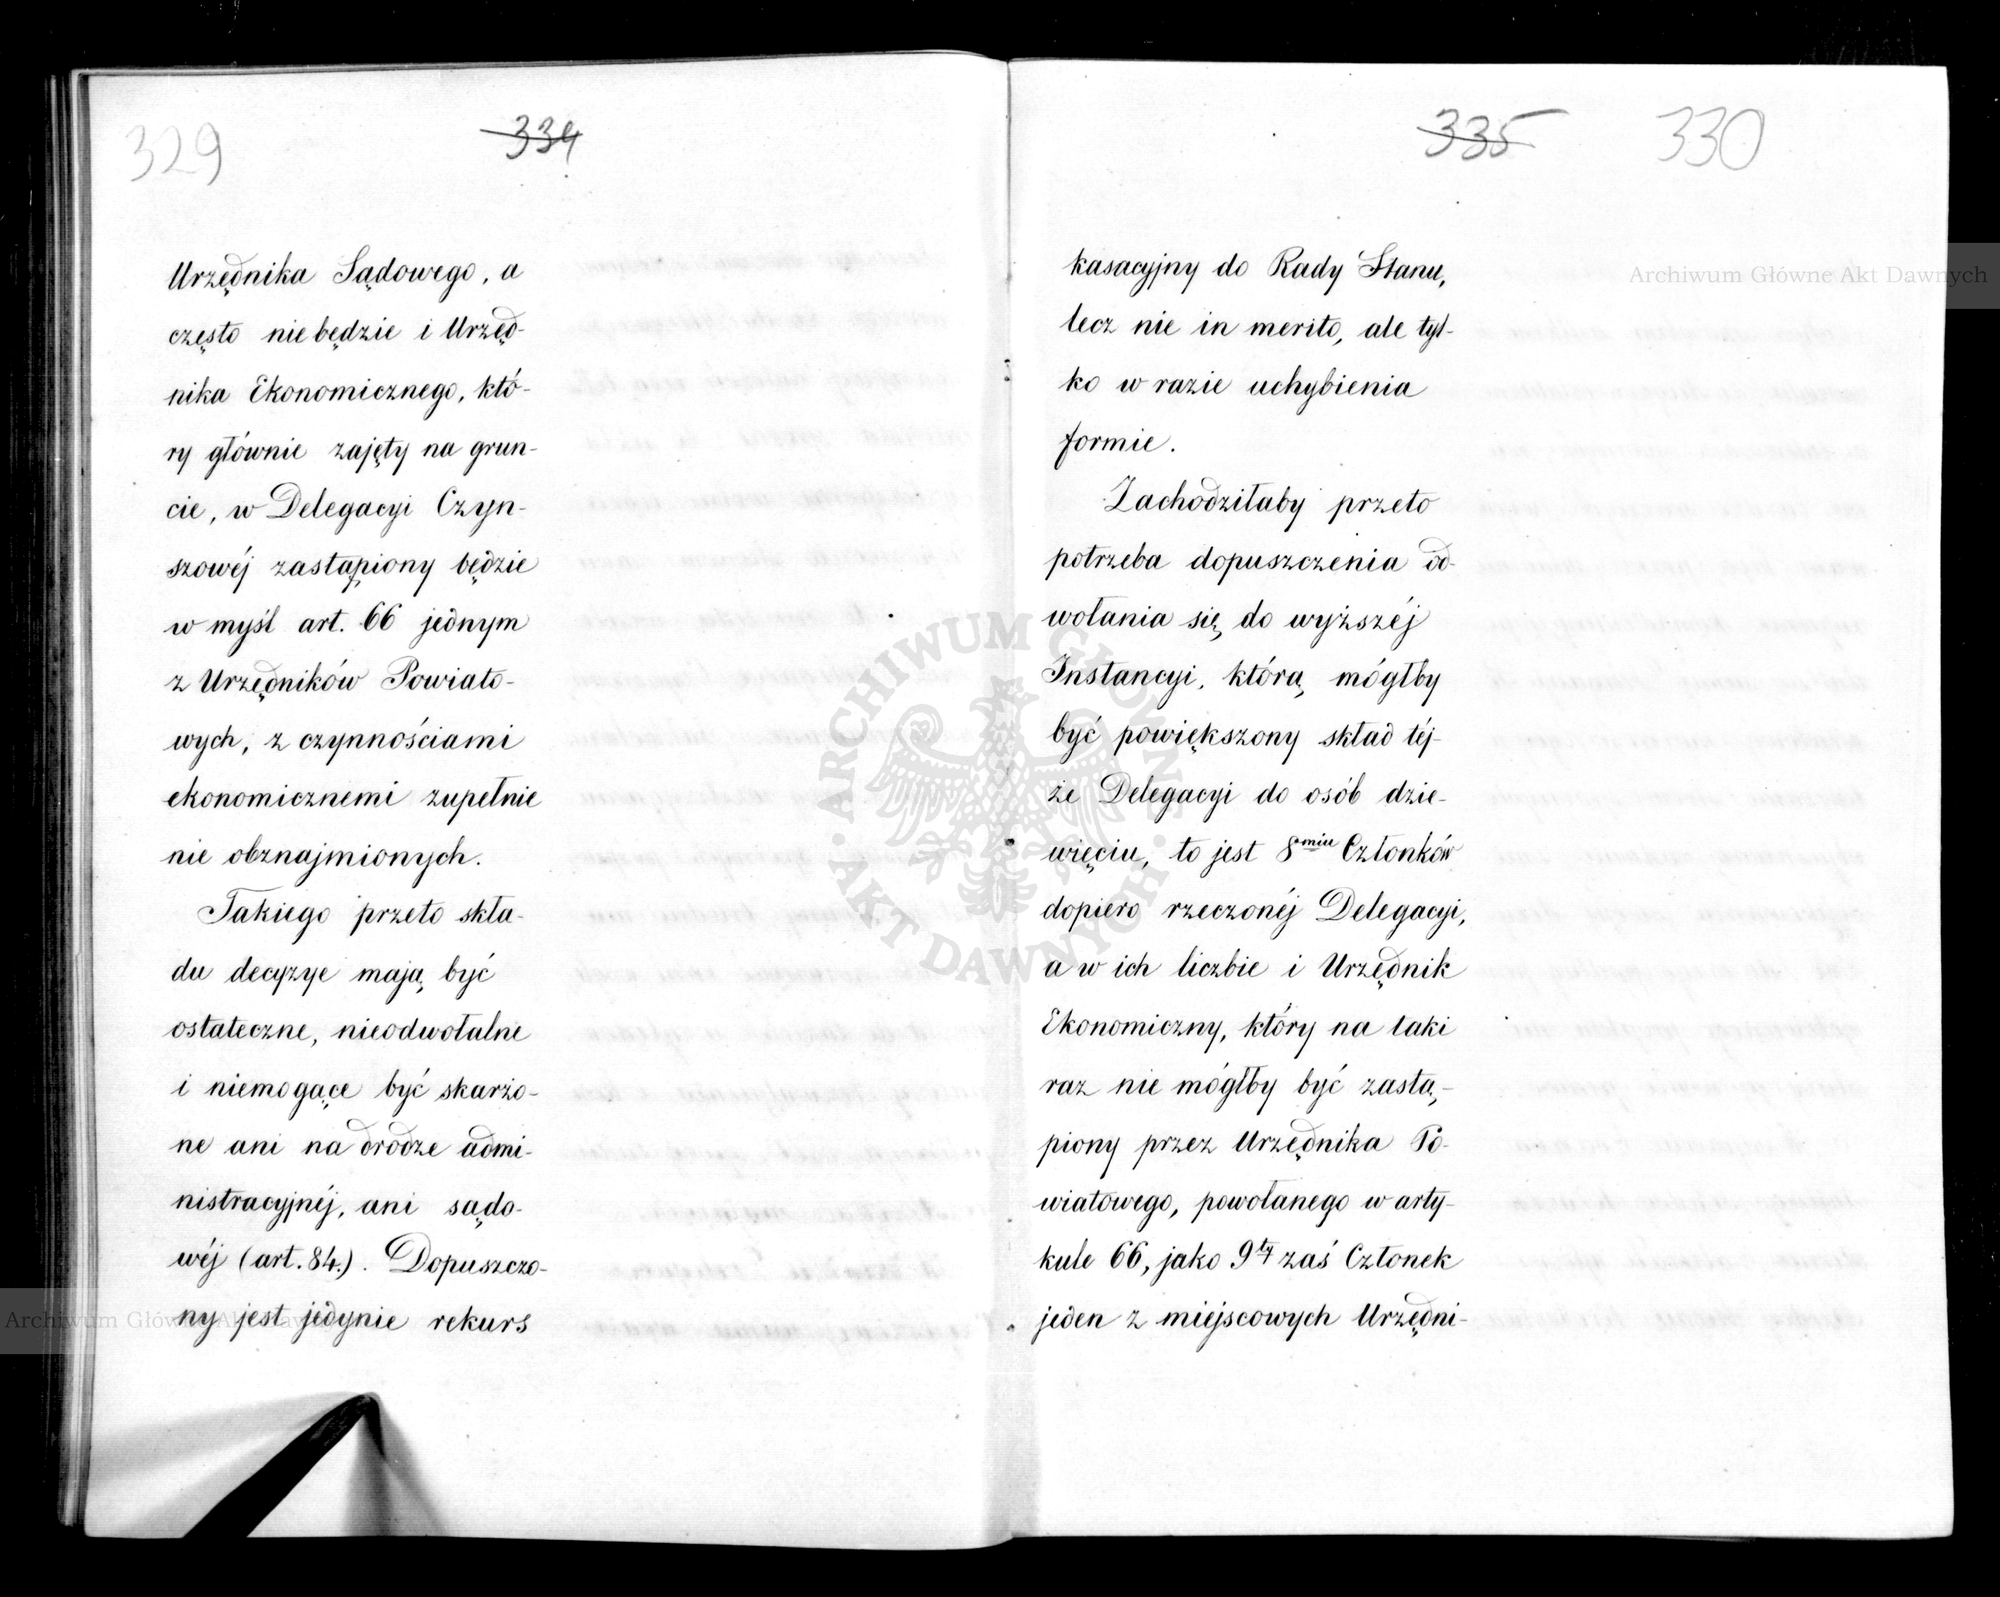 329
334
Urzędnika Sądowego, a
często nie będzie i Urzęd-
nika Ekonomicznego, któ-
ry głównie zajęty na grun-
cie, w Delegacyi Czyn-
szowéj zastąpiony będzie
w myśl art. 66 jednym
z Urzędników Powiato-
wych, z czynnościami
ekonomicznemi zupełnie
nie obznajmionych.
Takiego przeto skła-
du decyzye mają być
ostateczne, nieodwołalne
i niemogące być skarżo-
ne ani na drodze admi-
nistracyjnéj, ani sądo-
wéj (art. 84.). Dopuszczo-
ny jest jedynie rekurs
335
330
kasacyjny do Rady Stanu,
lecz nie in merito, ale tyl-
ko w razie uchybienia
formie.
Zachodziłaby przeto
potrzeba dopuszczenia od-
wołania się do wyższéj
Instancyi, którą mógłby
być powiększony skład téj-
że Delegacyi do osób dzie-
więciu, to jest 8miu Członków
dopiero rzeczonéj Delegacyi,
a w ich liczbie i Urzędnik
Ekonomiczny, który na taki
raz nie mógłby być zastą-
piony przez Urzędnika Po-
wiatowego, powołanego w arty-
kule 66, jako 9ty zaś Członek
jeden z miejscowych Urzędni-
Archiwum Główne Akt Dawnych
Archiwum Główne Akt Dawnych
ARCHIWUM GŁÓWNE
AKT DAWNYCH